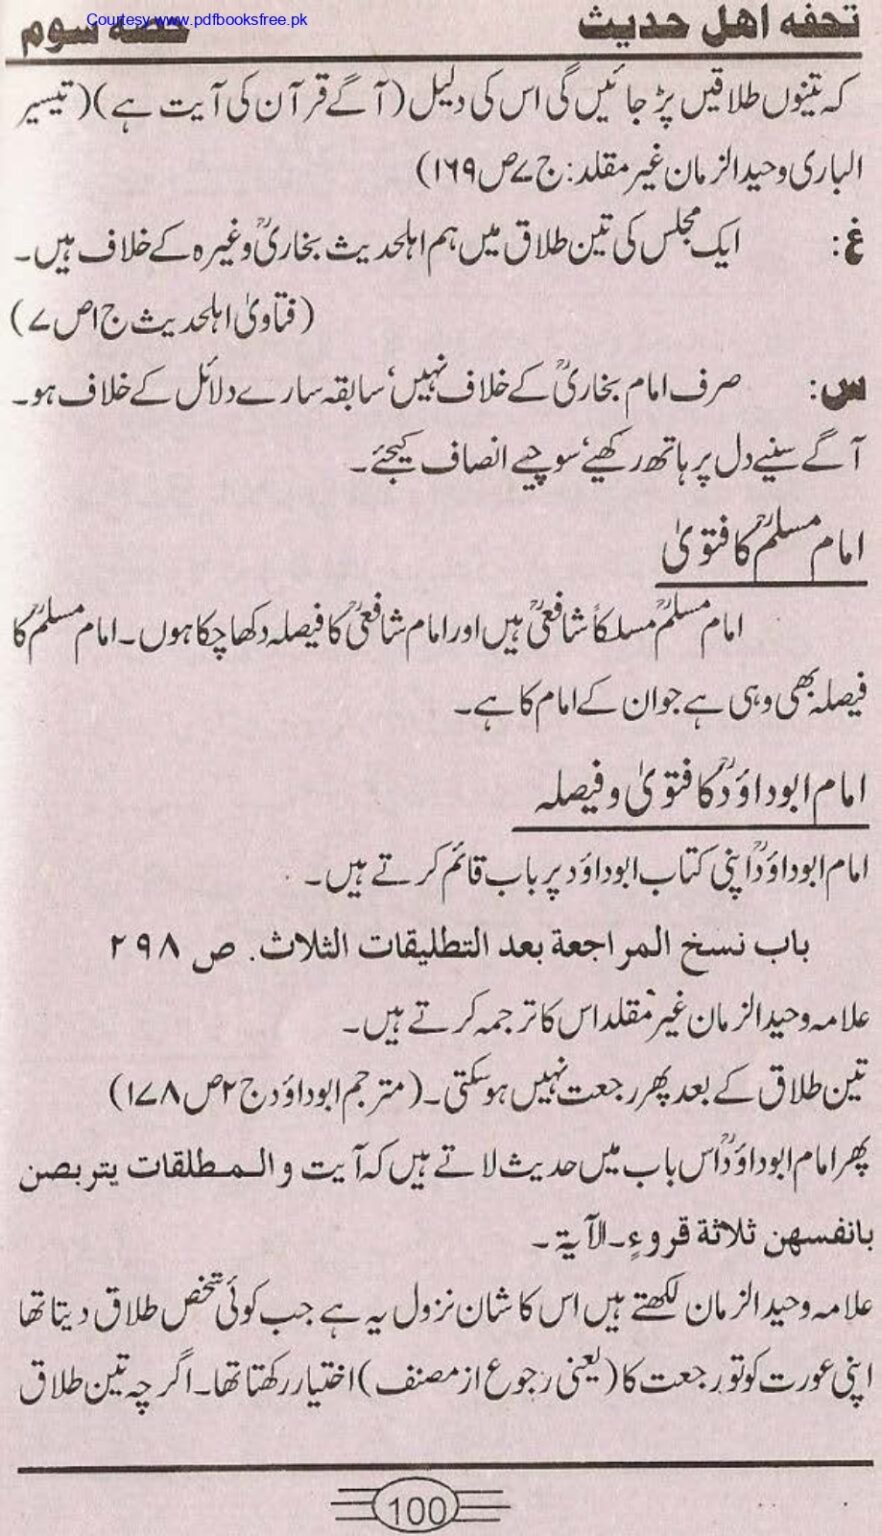 تحفہ اہل حدیث
حصہ سوم
Courtesy www.pdfbooksfree.pk
کہ تینوں طلاقیں پڑ جائیں گی اس کی دلیل (آگے قرآن کی آیت ہے) (تیسیر
الباری وحید الزمان غیر مقلد: ج ۷ ص ۱۶۹)
غ: ایک مجلس کی تین طلاق میں ہم اہلحدیث بخاریؒ وغیرہ کے خلاف ہیں۔
(فتاویٰ اہلحدیث ج ۱ ص ۷)
س: صرف امام بخاریؒ کے خلاف نہیں، سابقہ سارے دلائل کے خلاف ہو۔
آگے سنیے دل پر ہاتھ رکھیے، سوچیے انصاف کیجئے۔
امام مسلمؒ کا فتویٰ
امام مسلمؒ مسلکاً شافعیؒ ہیں اور امام شافعیؒ کا فیصلہ دکھا چکا ہوں۔ امام مسلمؒ کا
فیصلہ بھی وہی ہے جو ان کے امام کا ہے۔
امام ابوداؤدؒ کا فتویٰ و فیصلہ
امام ابوداؤدؒ اپنی کتاب ابوداؤد پر باب قائم کرتے ہیں۔
باب نسخ المراجعة بعد التطليقات الثلاث. ص ۲۹۸
علامہ وحید الزمان غیر مقلد اس کا ترجمہ کرتے ہیں۔
تین طلاق کے بعد پھر رجعت نہیں ہوسکتی۔ (مترجم ابوداؤد ج ۲ ص ۱۷۸)
پھر امام ابوداؤدؒ اس باب میں حدیث لاتے ہیں کہ آیت والمطلقات یتربصن
بانفسهن ثلاثة قروءٍ۔ الآیۃ۔
علامہ وحید الزمان لکھتے ہیں اس کا شان نزول یہ ہے جب کوئی شخص طلاق دیتا تھا
اپنی عورت کو تو رجعت کا (یعنی رجوع از مصنف) اختیار رکھتا تھا۔ اگرچہ تین طلاق
100